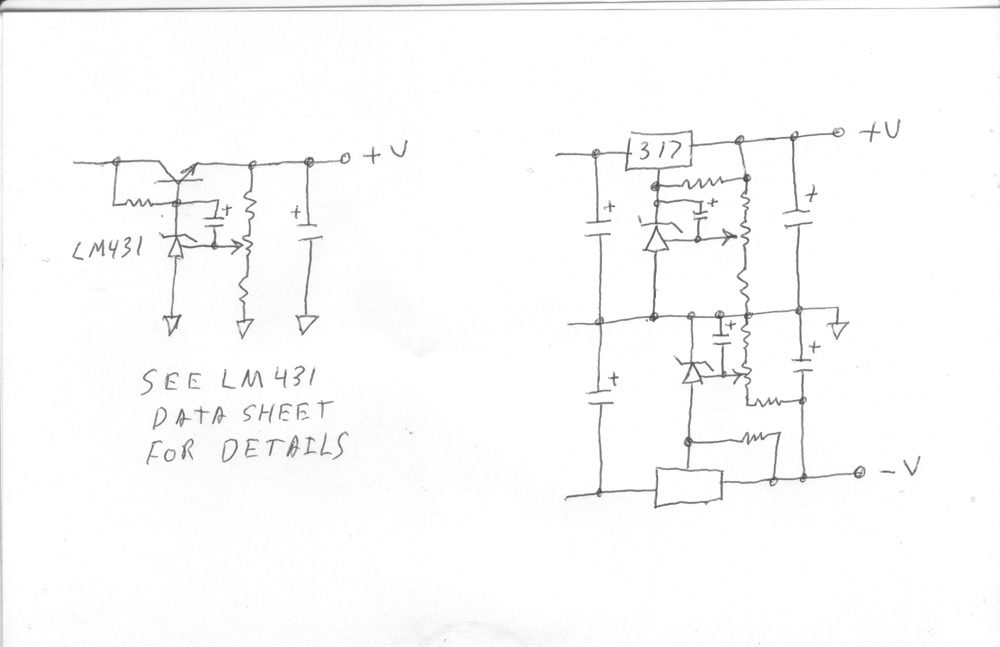 +V
LM431
+
+
SEE LM431
DATA SHEET
FOR DETAILS
317
+V
+
+
+
+
+
+
-V